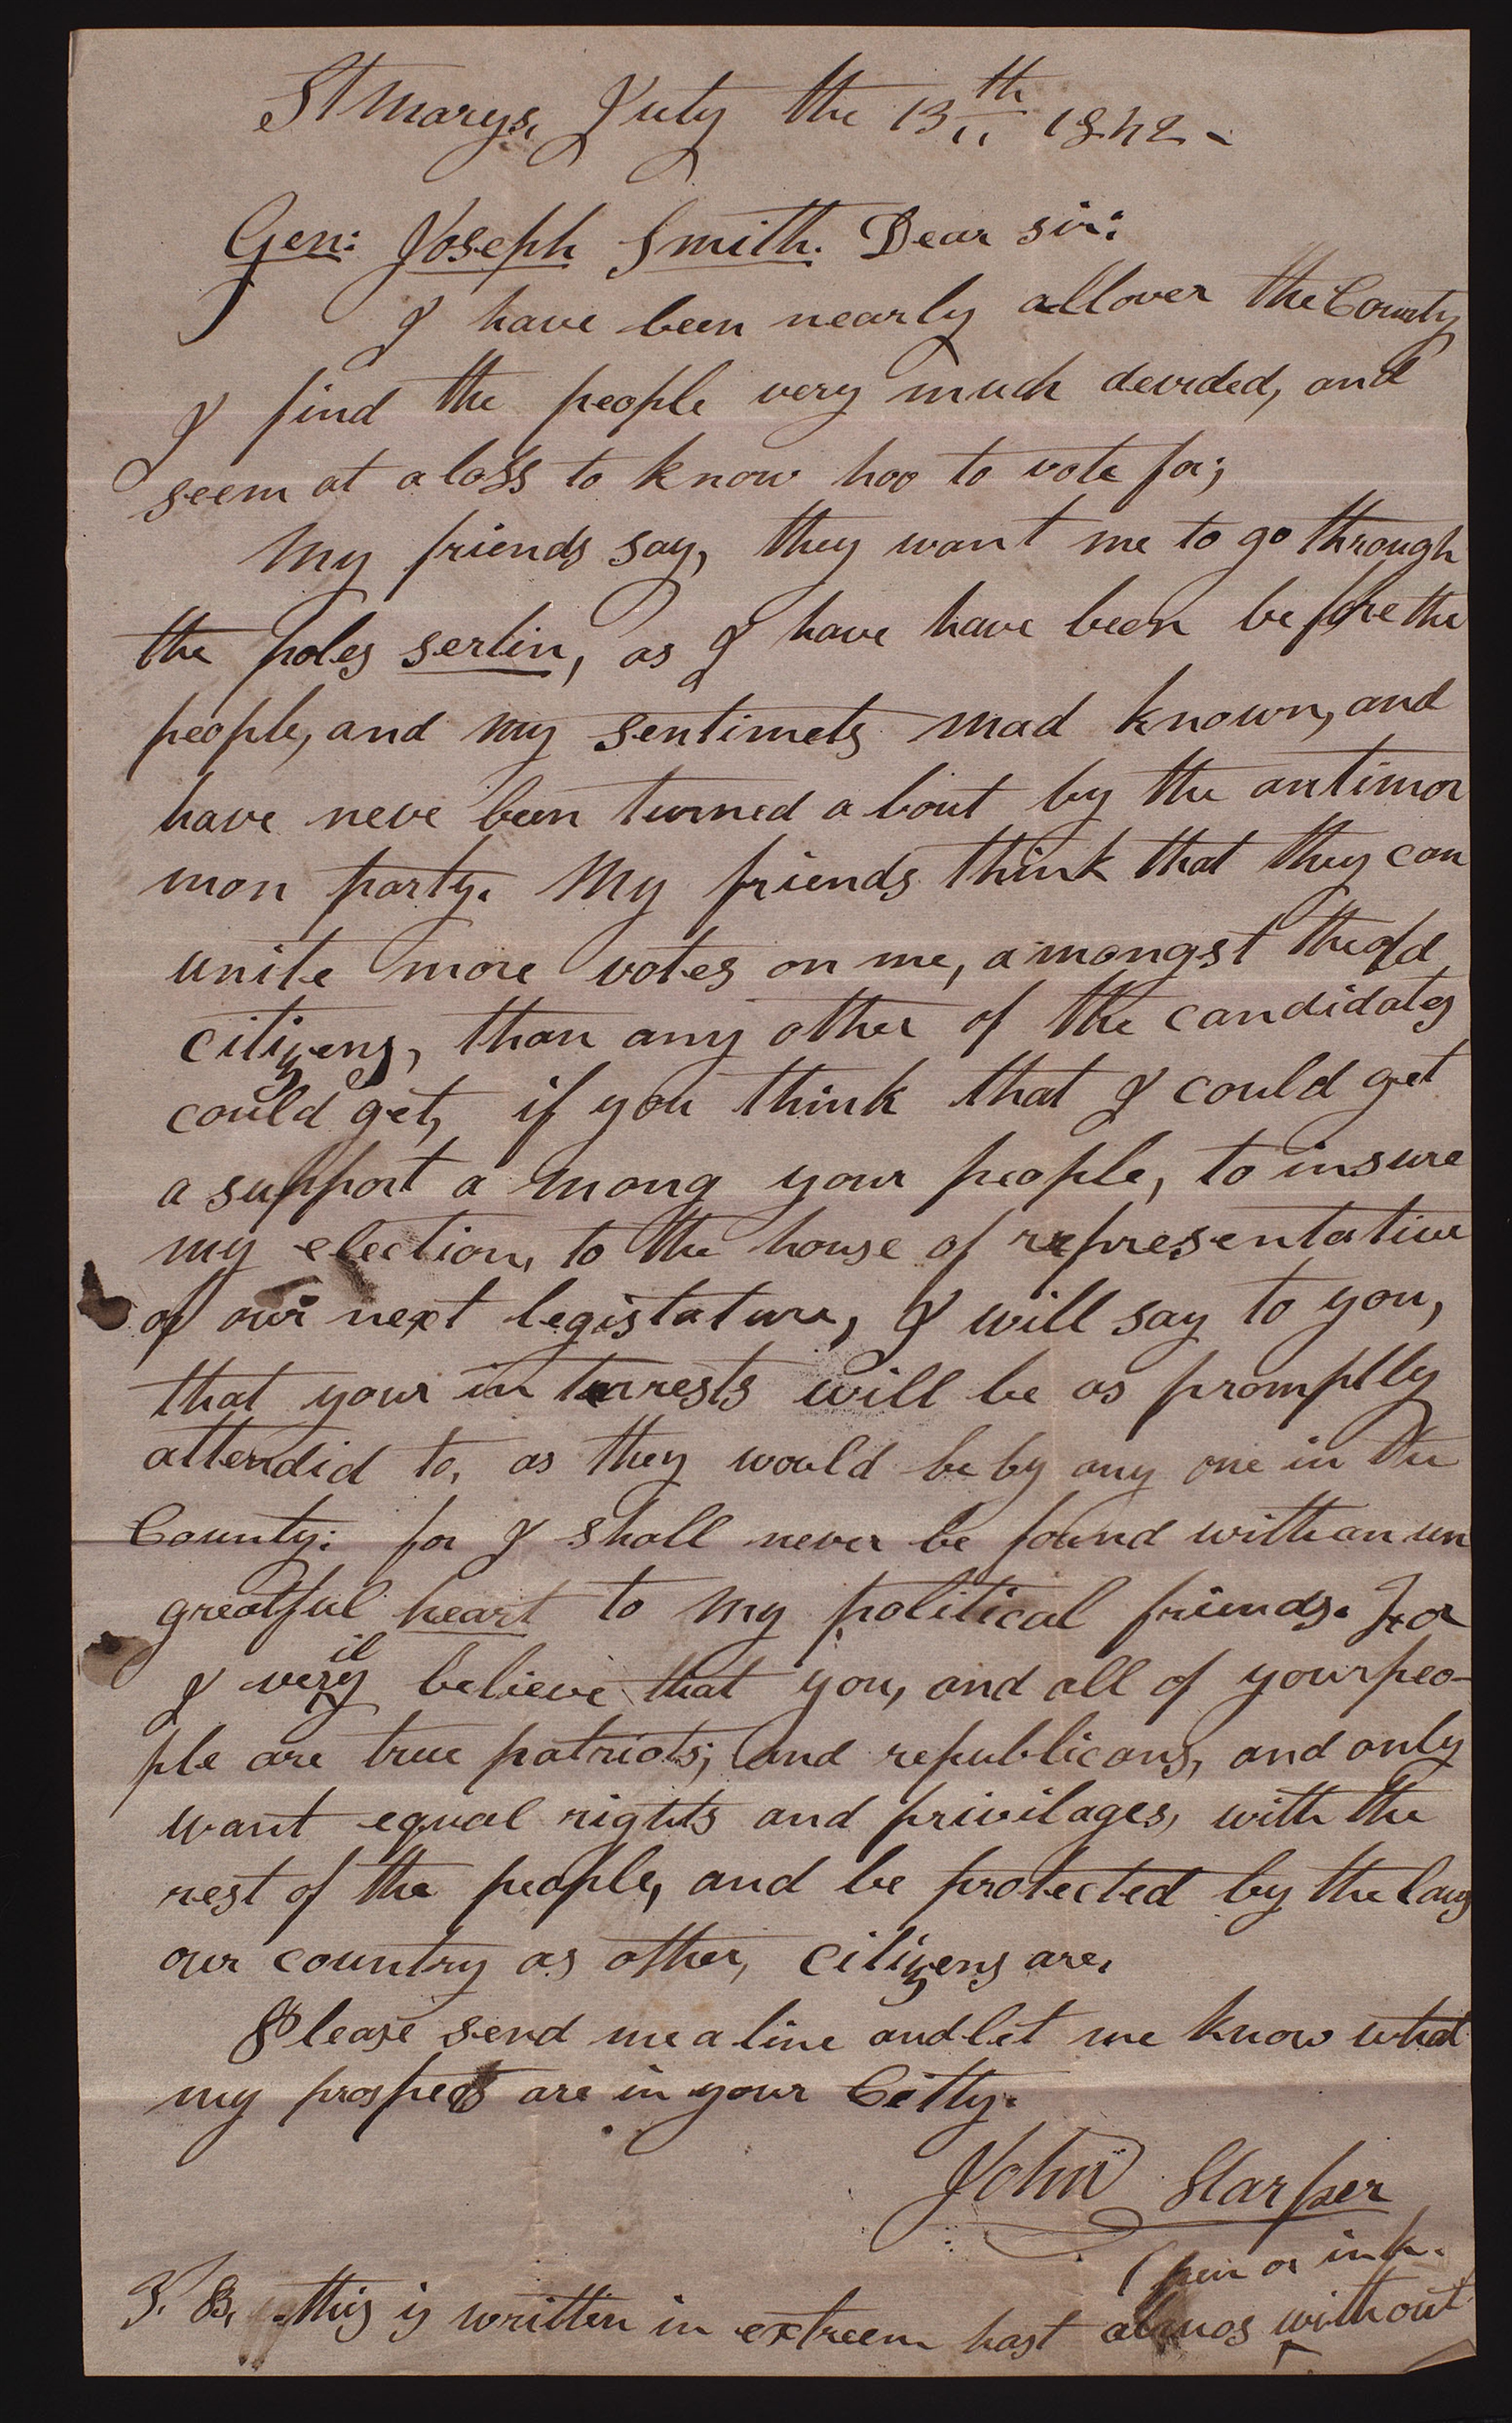 St Marys, July the 13th 1842–
Gen: Joseph Smith. Dear sir:
I have been nearly allover the County
I find the people very much devided, and
seem at a loss to know hoo to vote for;
My friends say, they want me to go through
the poles sertin, as I have have been before the
people, and my sentimets mad known, and
have neve been turned a bout by the antimor
mon party. My friends think that they can
unite more votes on me, amongst the old
citizens, than any other of the candidates
could get, if you think that I could get
a support a mong your people, to insure
my election, to the house of representative
of our next legistature, I will say to you,
that your in terrests will be as promptly
attendid to, as they would be by any one in the
County: for I shall never be found with an un
greatful heart to my political friends. For
il
I very believe that you, and all of your peo-
ple are true patriots; and republicans, and only
want equal rights and privilages, with the
rest of the people, and be protected by the laws
our country as other, citizens are.
Please send me a line and let me know what
my prospects are in your Citty.
John Harper
(pen or ink.
N. B. this is written in extreem hast almos without